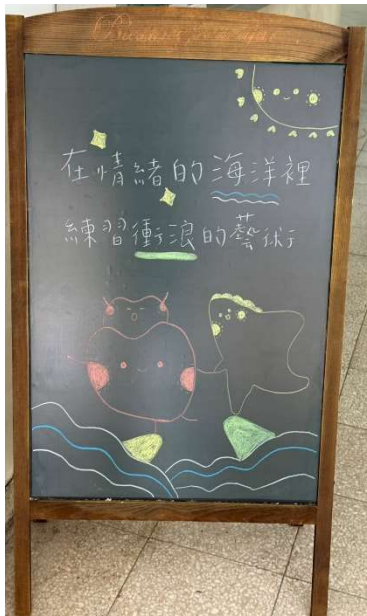 在情緒的海洋裡
練習衝浪的藝術